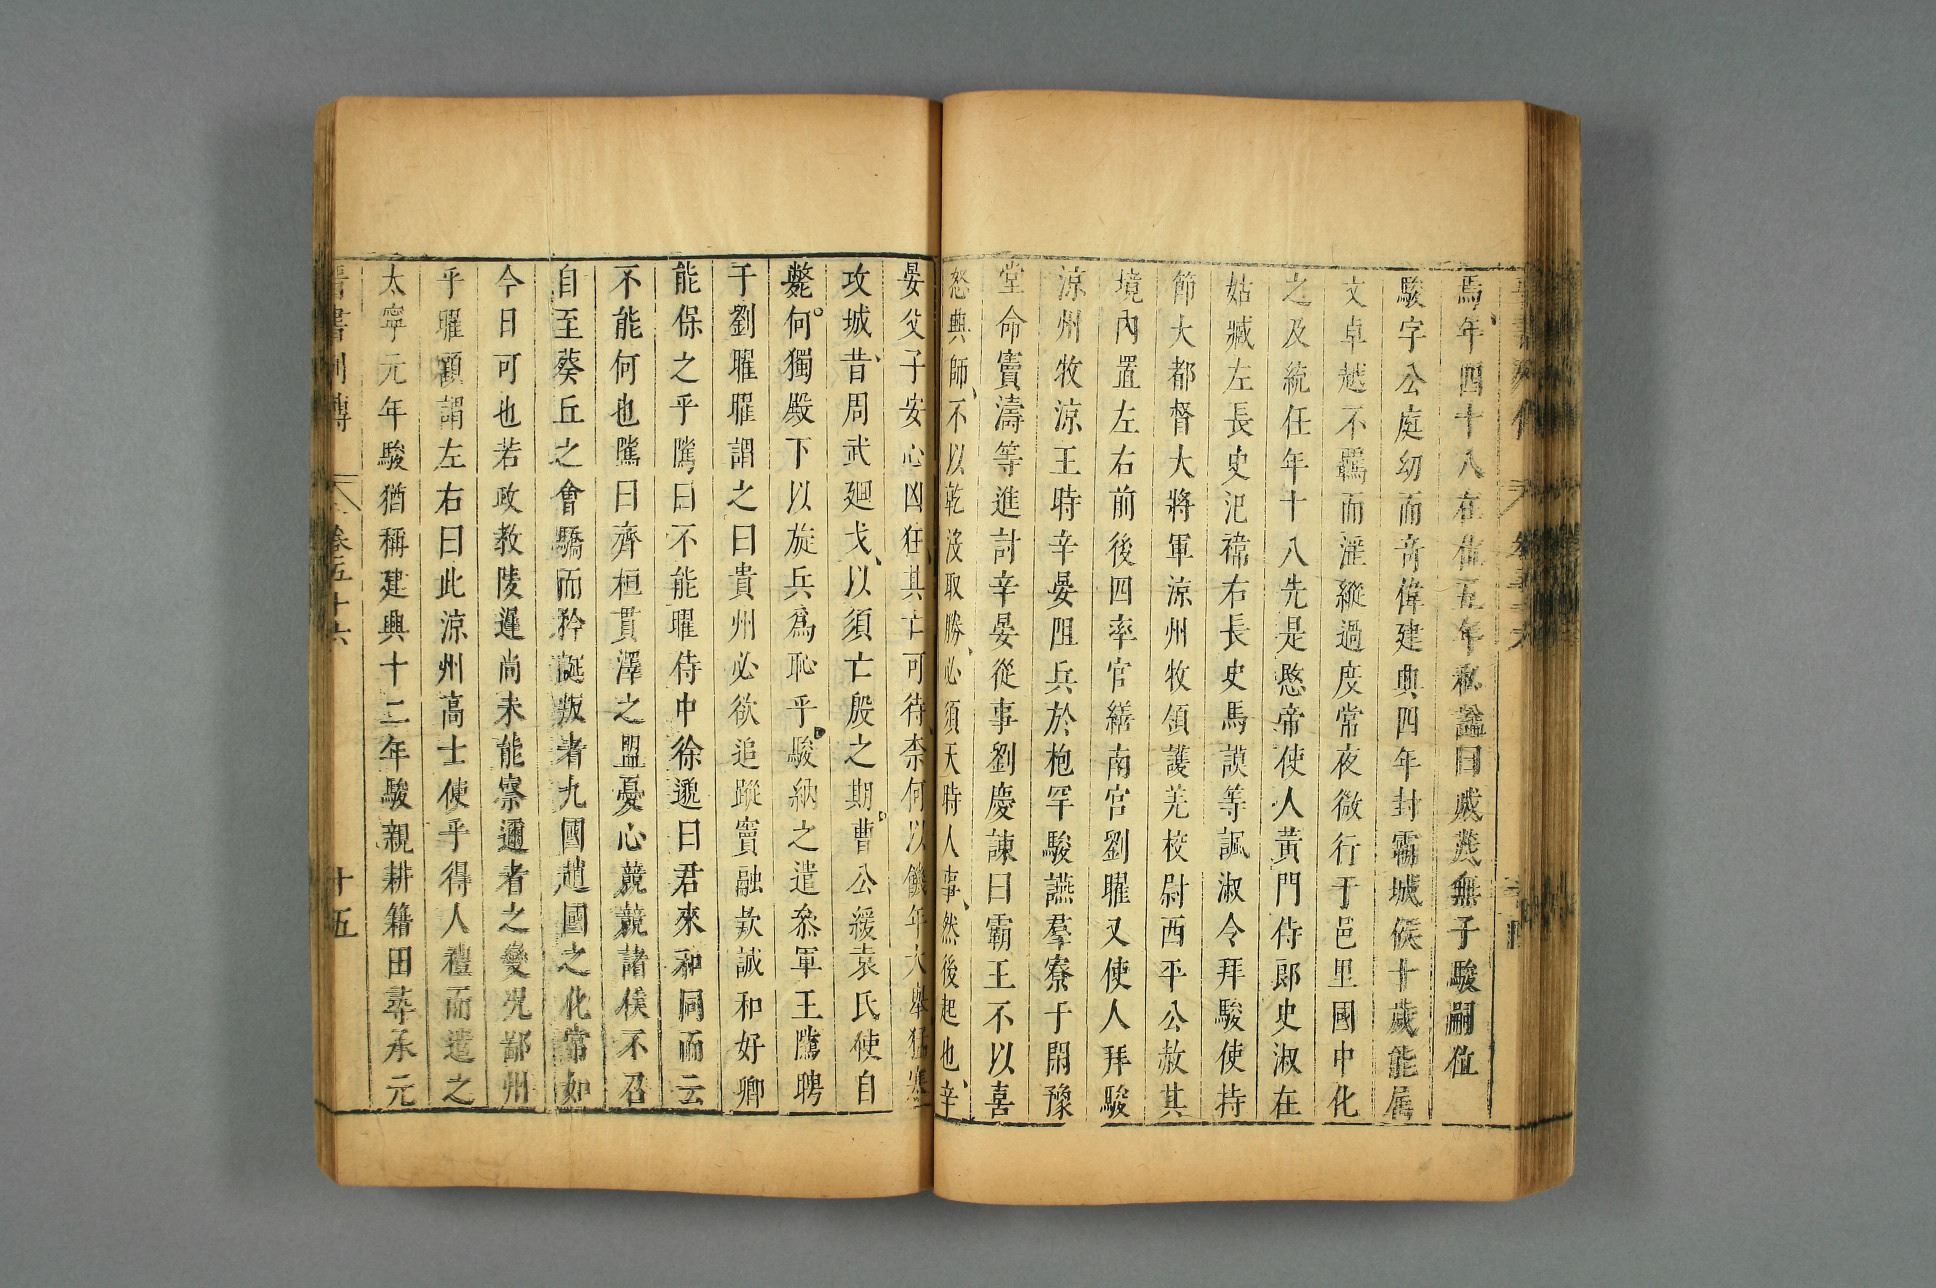 焉年四十八在位五年私諡曰成茂無子駿嗣位
駿字公庭幼而奇偉建興四年封霸城侯十歲能屬
文卓越不羈而淫縱過度常夜微行于邑里國中化
之及統任年十八先是愍帝使人黃門侍郎史淑在
姑臧左長史氾禕右長史馬謨等諷淑令拜駿使持
節大都督大將軍涼州牧領護羌校尉西平公赦其
境內置左右前後四率官繕南宮劉曜又使人拜駿
涼州牧涼王時辛晏阻兵於枹罕駿讌羣寮于閑豫
堂命竇濤等進討辛晏從事劉慶諫曰霸王不以喜
怒興師不以乾沒取勝必須天時人事然後起也辛
晏父子安心凶狂其亡可待柰何以饑年大舉猛寒
攻城昔周武廻戈以須亡殷之期曹公緩袁氏使自
斃何獨殿下以旋兵爲恥乎駿納之遣叅軍王騭聘
于劉曜曜謂之曰貴州必欲追蹤竇融款誠和好卿
能保之乎騭曰不能曜侍中徐邈曰君來和同而云
不能何也騭曰齊桓貫澤之盟憂心兢兢諸侯不召
自至葵丘之會驕而矜誕叛者九國趙國之化常如
今日可也若政教陵遲尚未能察邇者之變況鄙州
乎曜顧謂左右曰此涼州高士使乎得人禮而遣之
太寧元年駿猶稱建興十二年駿親耕籍田尋承元
晉書列傳 卷五十六 十五